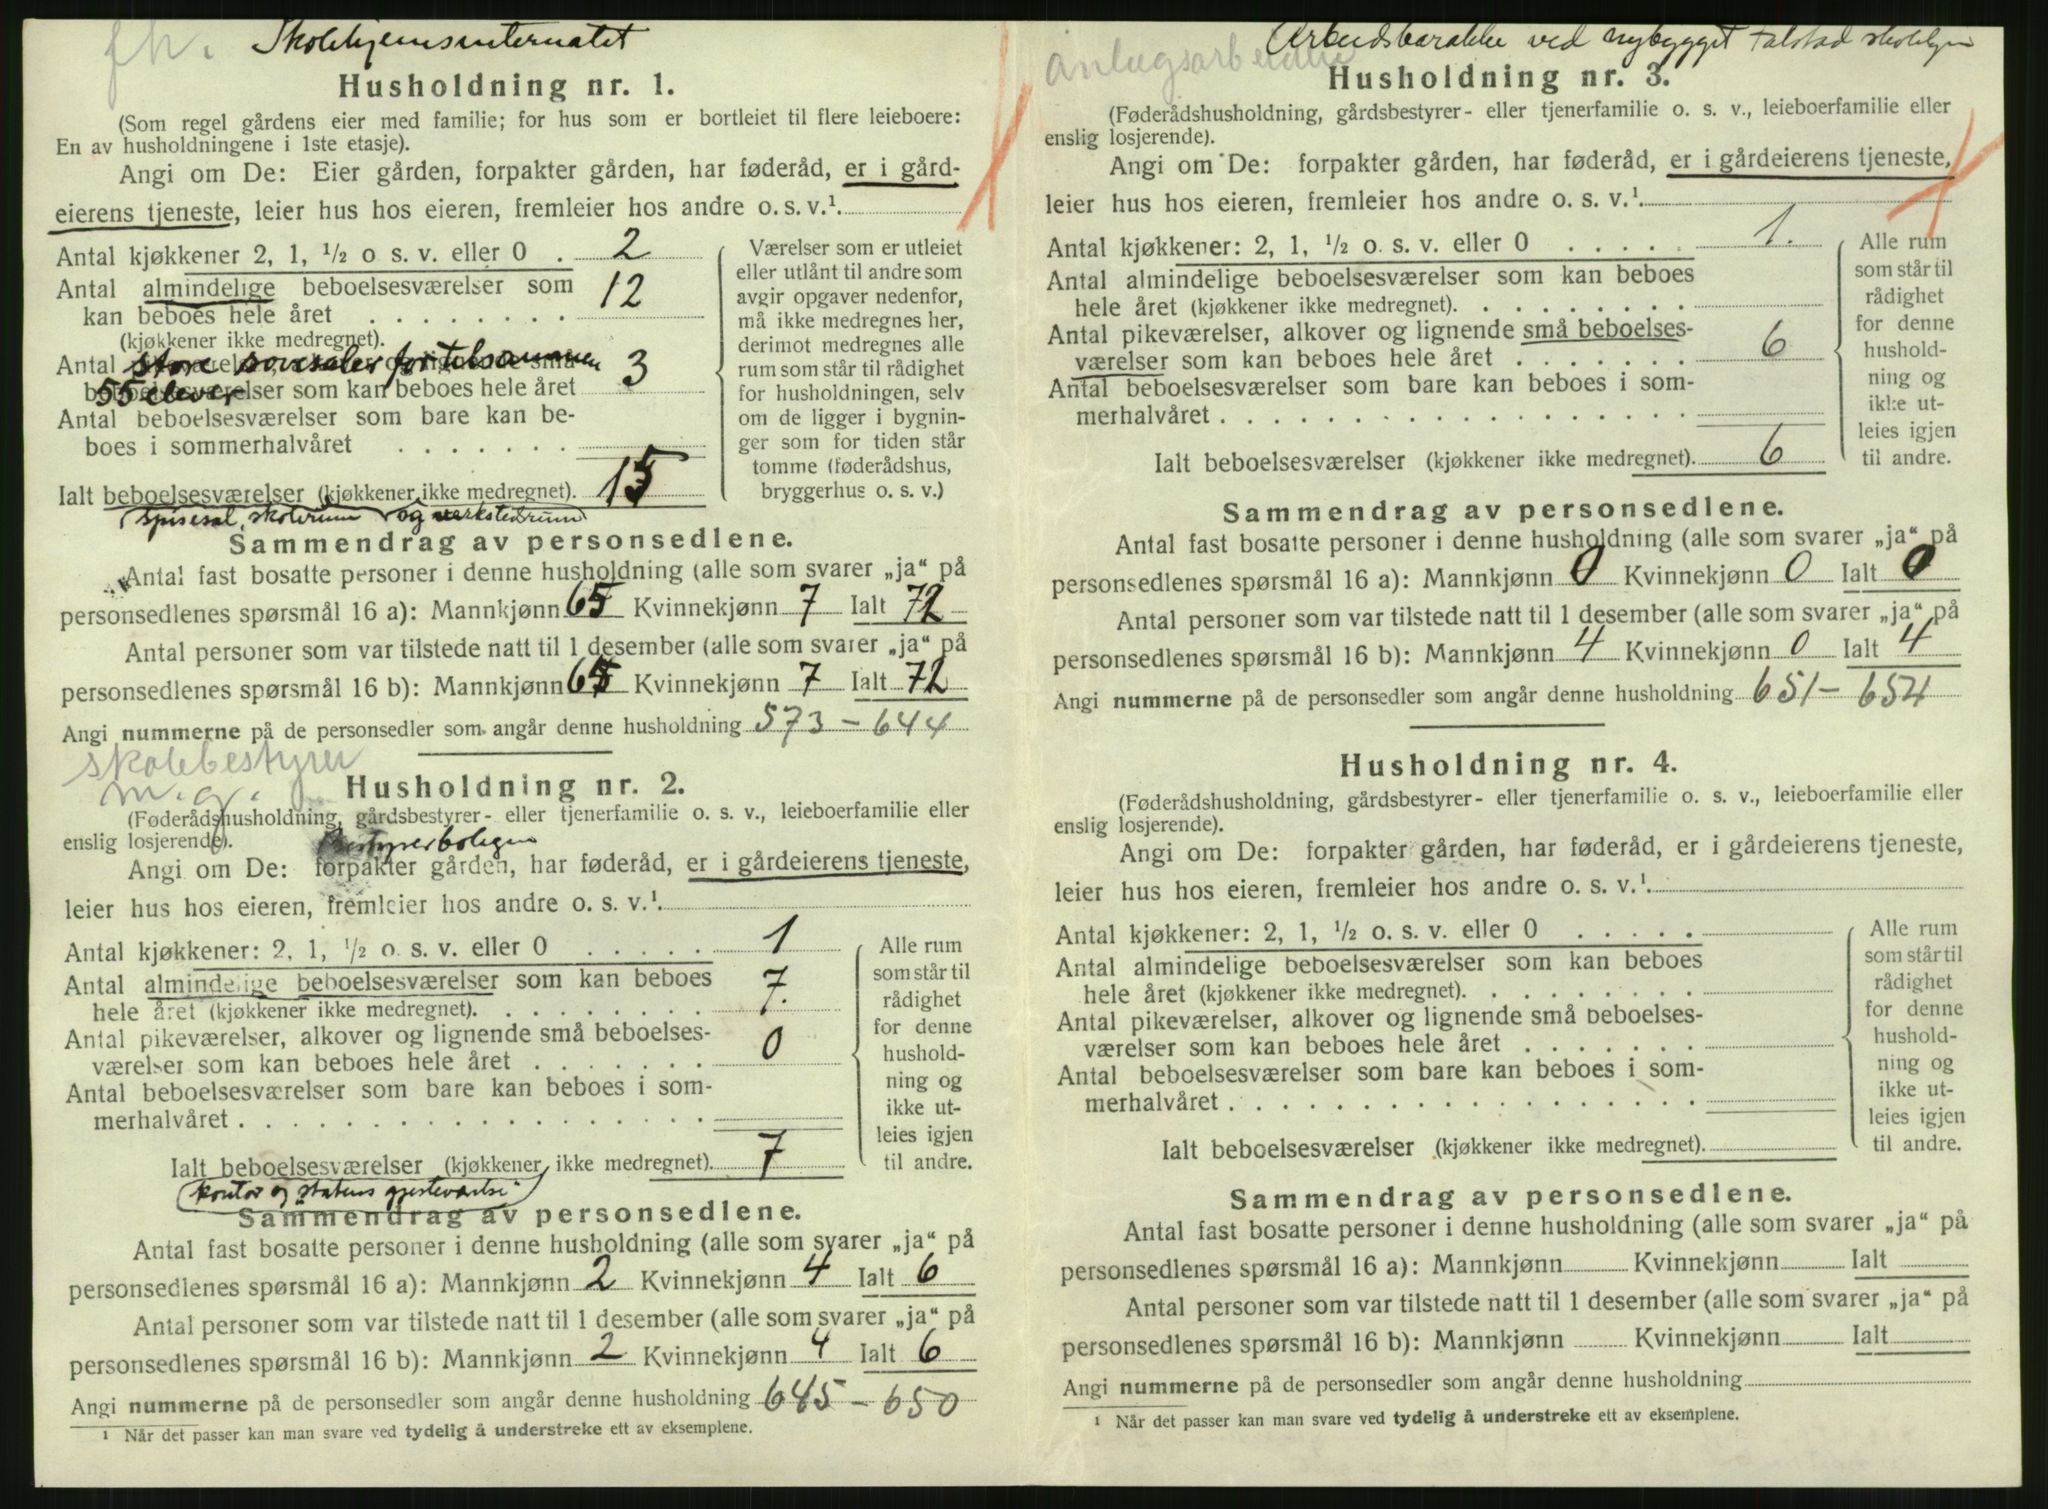 fh. Skolehjemsinternatet
Husholdning nr. 1.
(Som regel gårdens eier med familie; for hus som er bortleiet til flere leieboere:
En av husholdningene i 1ste etasje).
Angi om De: Eier gården, forpakter gården, har føderåd, er i gård-
eierens tjeneste, leier hus hos eieren, fremleier hos andre o. s. v.¹
Antal kjøkkener 2, 1, ½ o s. v. eller 0 . 2
Antal almindelige beboelsesværelser som
kan beboes hele året . . . . . . . . 12
(kjøkkener ikke medregnet).
Antal store sovesaler for tilsammen 3
55 elever værelser som kan beboes hele året
Antal beboelsesværelser som bare kan be-
boes i sommerhalvåret . . . . . . .
Ialt beboelsesværelser (kjøkkener ikke medregnet). 15
(spisesal, skolerum og verkstedrum)
Værelser som er utleiet
eller utlånt til andre som
avgir opgaver nedenfor,
må ikke medregnes her,
derimot medregnes alle
rum som står til rådighet
for husholdningen, selv
om de ligger i bygnin-
ger som for tiden står
tomme (føderådshus,
bryggerhus o. s. v.)
Sammendrag av personsedlene.
Antal fast bosatte personer i denne husholdning (alle som svarer „ja“ på
personsedlenes spørsmål 16 a): Mannkjønn 65 Kvinnekjønn 7 Ialt 72
Antal personer som var tilstede natt til 1 desember (alle som svarer „ja“ på
personsedlenes spørsmål 16 b): Mannkjønn 65 Kvinnekjønn 7 Ialt 72
Angi nummerne på de personsedler som angår denne husholdning 573 - 644
skolebestyrer
m. g.
Husholdning nr. 2.
(Føderådshusholdning, gårdsbestyrer- eller tjenerfamilie o. s. v., leieboerfamilie eller
enslig losjerende). Bestyrerboligen
Angi om De: forpakter gården, har føderåd, er i gårdeierens tjeneste,
leier hus hos eieren, fremleier hos andre o. s. v.¹
Antal kjøkkener: 2, 1, ½ o. s. v. eller 0 . . . . . 1
Antal almindelige beboelsesværelser som kan beboes
hele året (kjøkkener ikke medregnet). . . . . . . . . 7.
Antal pikeværelser, alkover og lignende små beboelses-
værelser som kan beboes hele året . . . . . . . 0
Antal beboelsesværelser som bare kan beboes i som-
merhalvåret . . . . . . . . . . . . . . . . .
Ialt beboelsesværelser (kjøkkener ikke medregnet). 7
(kontor og statens gjesteværelse)
Alle rum
som står til
rådighet
for denne
hushold-
ning og
ikke ut-
leies igjen
til andre.
Sammendrag av personsedlene.
Antal fast bosatte personer i denne husholdning (alle som svarer „ja“ på
personsedlenes spørsmål 16 a): Mannkjønn 2 Kvinnekjønn 4 Ialt 6
Antal personer som var tilstede natt til 1 desember (alle som svarer „ja“ på
personsedlenes spørsmål 16 b): Mannkjønn 2 Kvinnekjønn 4 Ialt 6
Angi nummerne på de personsedler som angår denne husholdning 645 - 650
¹ Når det passer kan man svare ved tydelig å understreke ett av eksemplene.
Arbeidsbarakke ved nybygget Falstad skolehjem
anlægsarbeidere
Husholdning nr. 3.
(Føderådshusholdning, gårdsbestyrer- eller tjenerfamilie o. s. v., leieboerfamilie eller
enslig losjerende).
Angi om De: forpakter gården, har føderåd, er i gårdeierens tjeneste,
leier hus hos eieren, fremleier hos andre o. s. v.¹
Antal kjøkkener: 2, 1, ½ o. s. v. eller 0 . . . . . 1.
Antal almindelige beboelsesværelser som kan beboes
hele året (kjøkkener ikke medregnet). . . . . . . . .
Antal pikeværelser, alkover og lignende små beboelses-
værelser som kan beboes hele året . . . . . . . 6
Antal beboelsesværelser som bare kan beboes i som-
merhalvåret . . . . . . . . . . . . . . . . .
Ialt beboelsesværelser (kjøkkener ikke medregnet). 6
Alle rum
som står til
rådighet
for denne
hushold-
ning og
ikke ut-
leies igjen
til andre.
Sammendrag av personsedlene.
Antal fast bosatte personer i denne husholdning (alle som svarer „ja“ på
personsedlenes spørsmål 16 a): Mannkjønn 0 Kvinnekjønn 0 Ialt 0
Antal personer som var tilstede natt til 1 desember (alle som svarer „ja“ på
personsedlenes spørsmål 16 b): Mannkjønn 4 Kvinnekjønn 0 Ialt 4
Angi nummerne på de personsedler som angår denne husholdning 651 - 654
Husholdning nr. 4.
(Føderådshusholdning, gårdsbestyrer- eller tjenerfamilie o. s. v., leieboerfamilie eller
enslig losjerende).
Angi om De: forpakter gården, har føderåd, er i gårdeierens tjeneste,
leier hus hos eieren, fremleier hos andre o. s. v.¹
Antal kjøkkener: 2, 1, ½ o. s. v. eller 0 . . . . .
Antal almindelige beboelsesværelser som kan beboes
hele året (kjøkkener ikke medregnet). . . . . . . . .
Antal pikeværelser, alkover og lignende små beboelses-
værelser som kan beboes hele året . . . . . . .
Antal beboelsesværelser som bare kan beboes i som-
merhalvåret . . . . . . . . . . . . . . . . .
Ialt beboelsesværelser (kjøkkener ikke medregnet).
Alle rum
som står til
rådighet
for denne
hushold-
ning og
ikke ut-
leies igjen
til andre.
Sammendrag av personsedlene.
Antal fast bosatte personer i denne husholdning (alle som svarer „ja“ på
personsedlenes spørsmål 16 a): Mannkjønn Kvinnekjønn Ialt
Antal personer som var tilstede natt til 1 desember (alle som svarer „ja“ på
personsedlenes spørsmål 16 b): Mannkjønn Kvinnekjønn Ialt
Angi nummerne på de personsedler som angår denne husholdning
¹ Når det passer kan man svare ved tydelig å understreke ett av eksemplene.